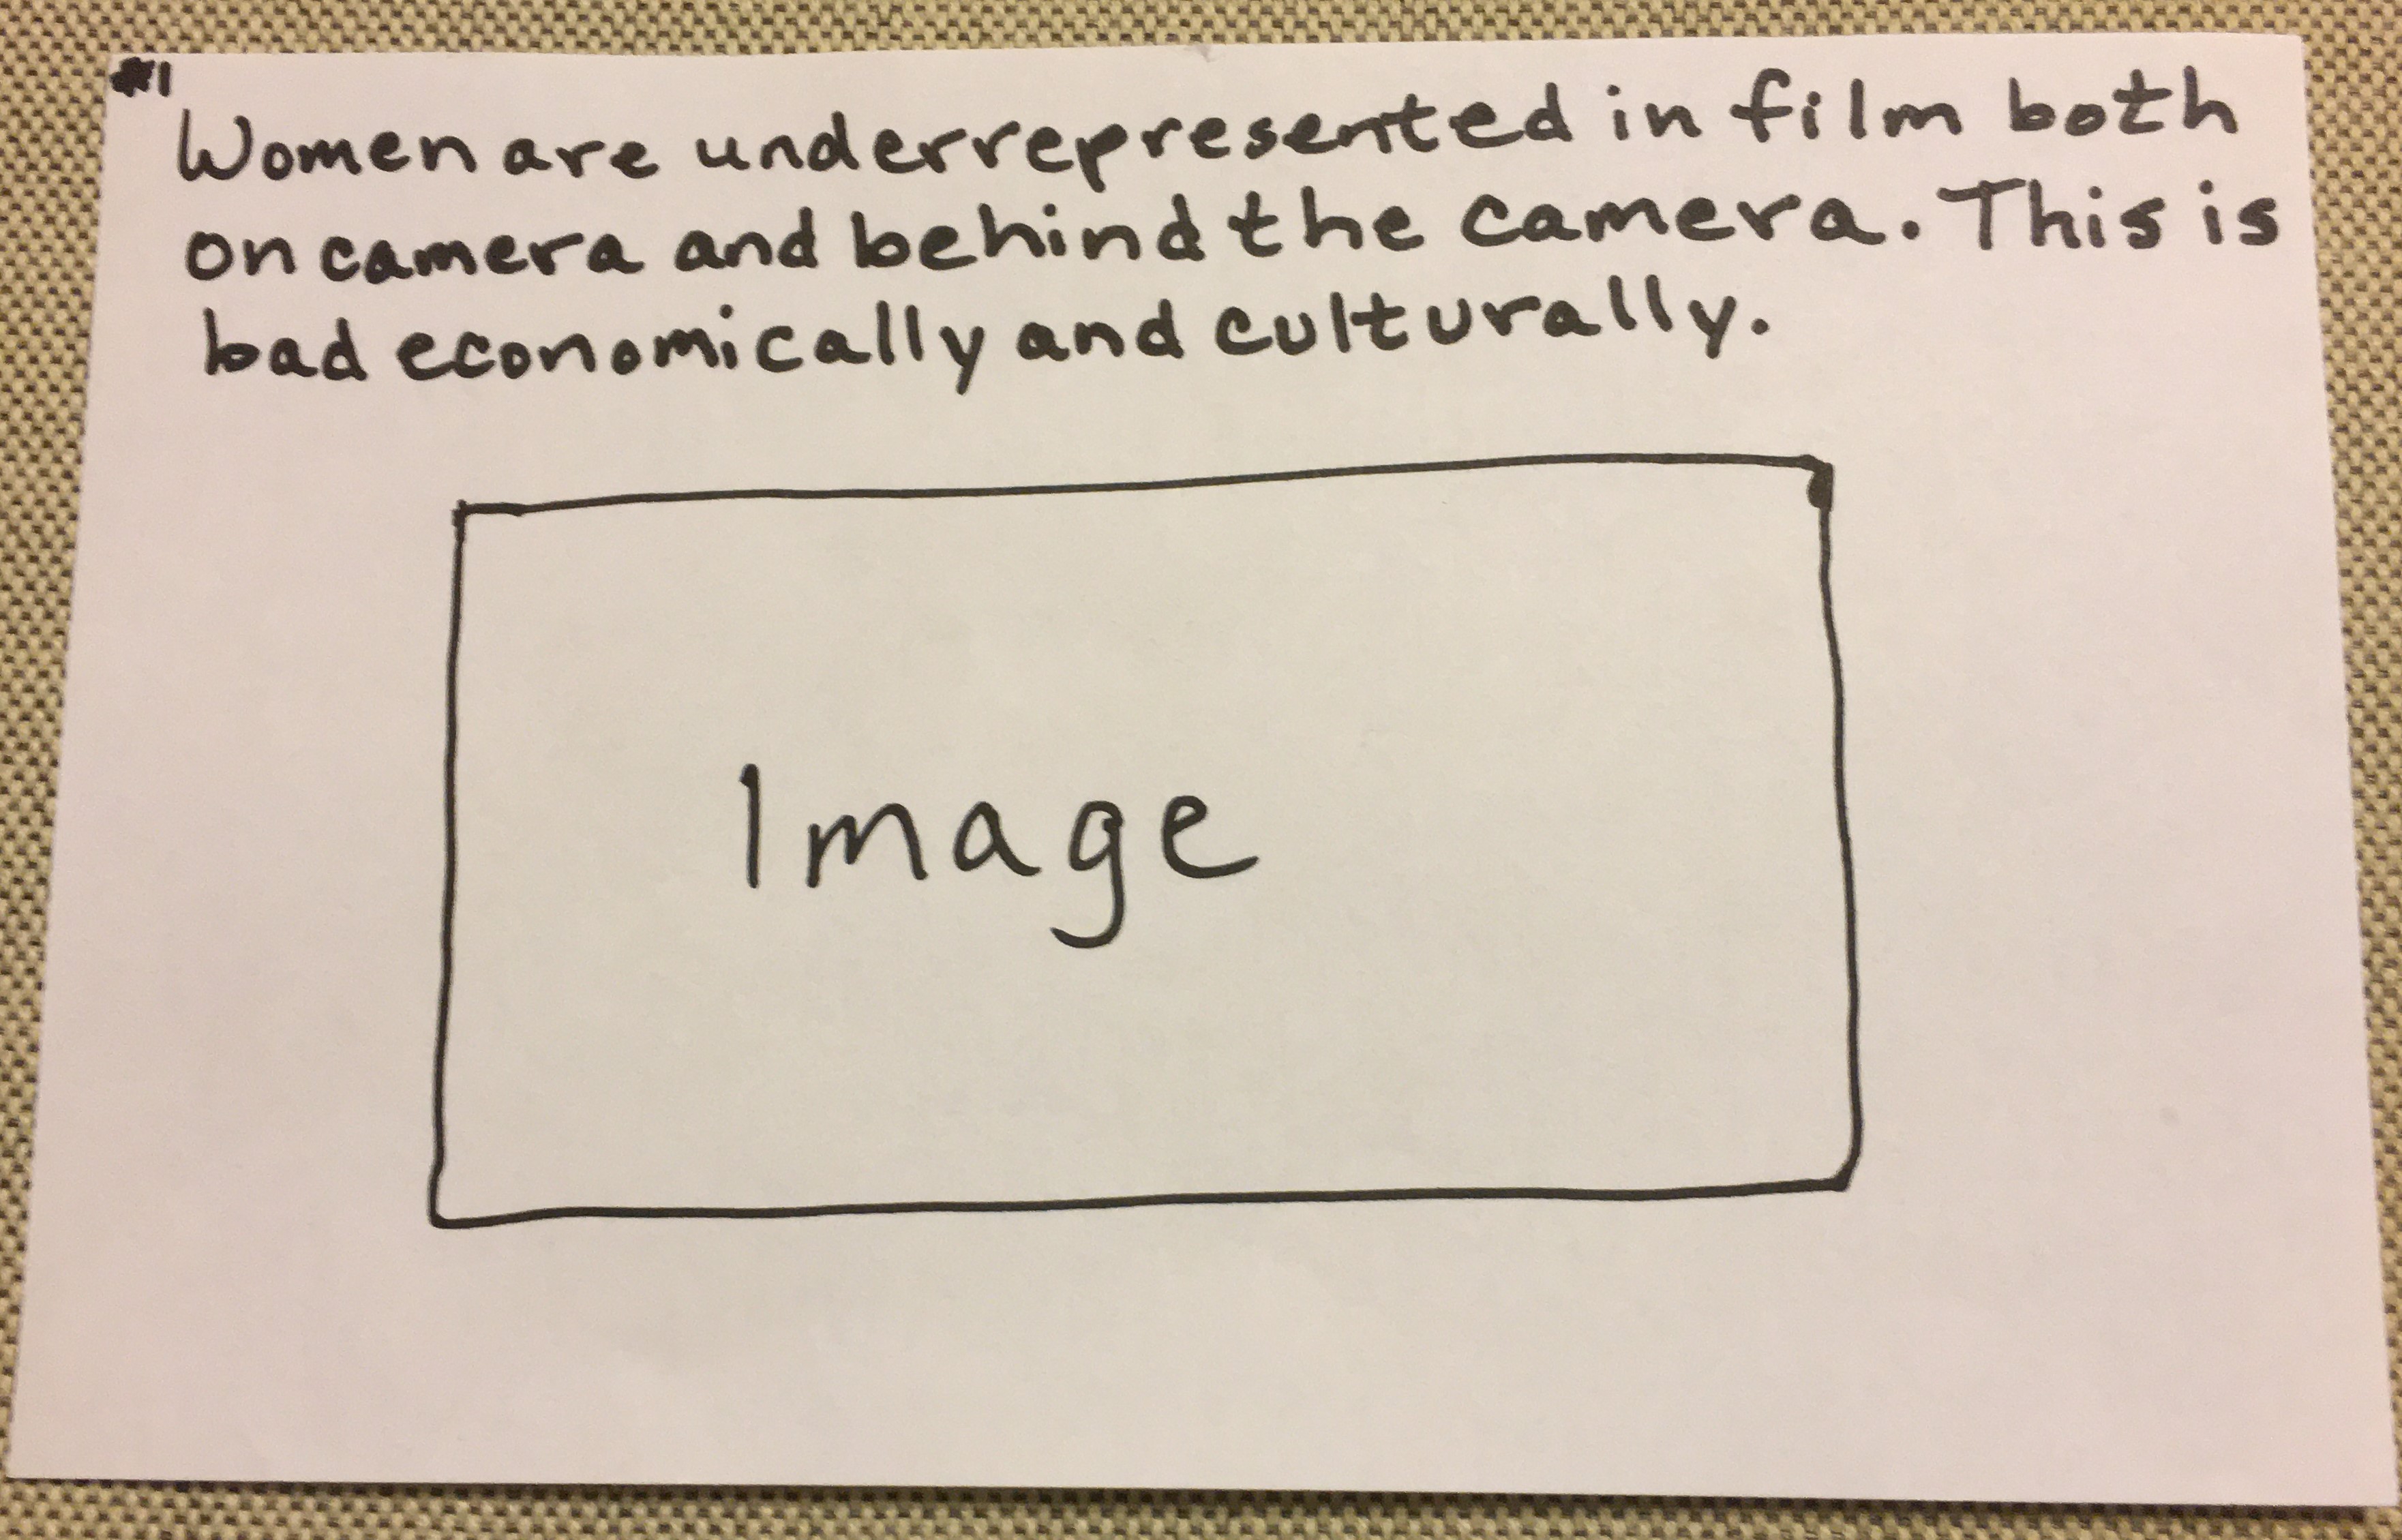 #1
Women are underrepresented in film both
on camera and behind the camera. This is
bad economically and culturally.
Image